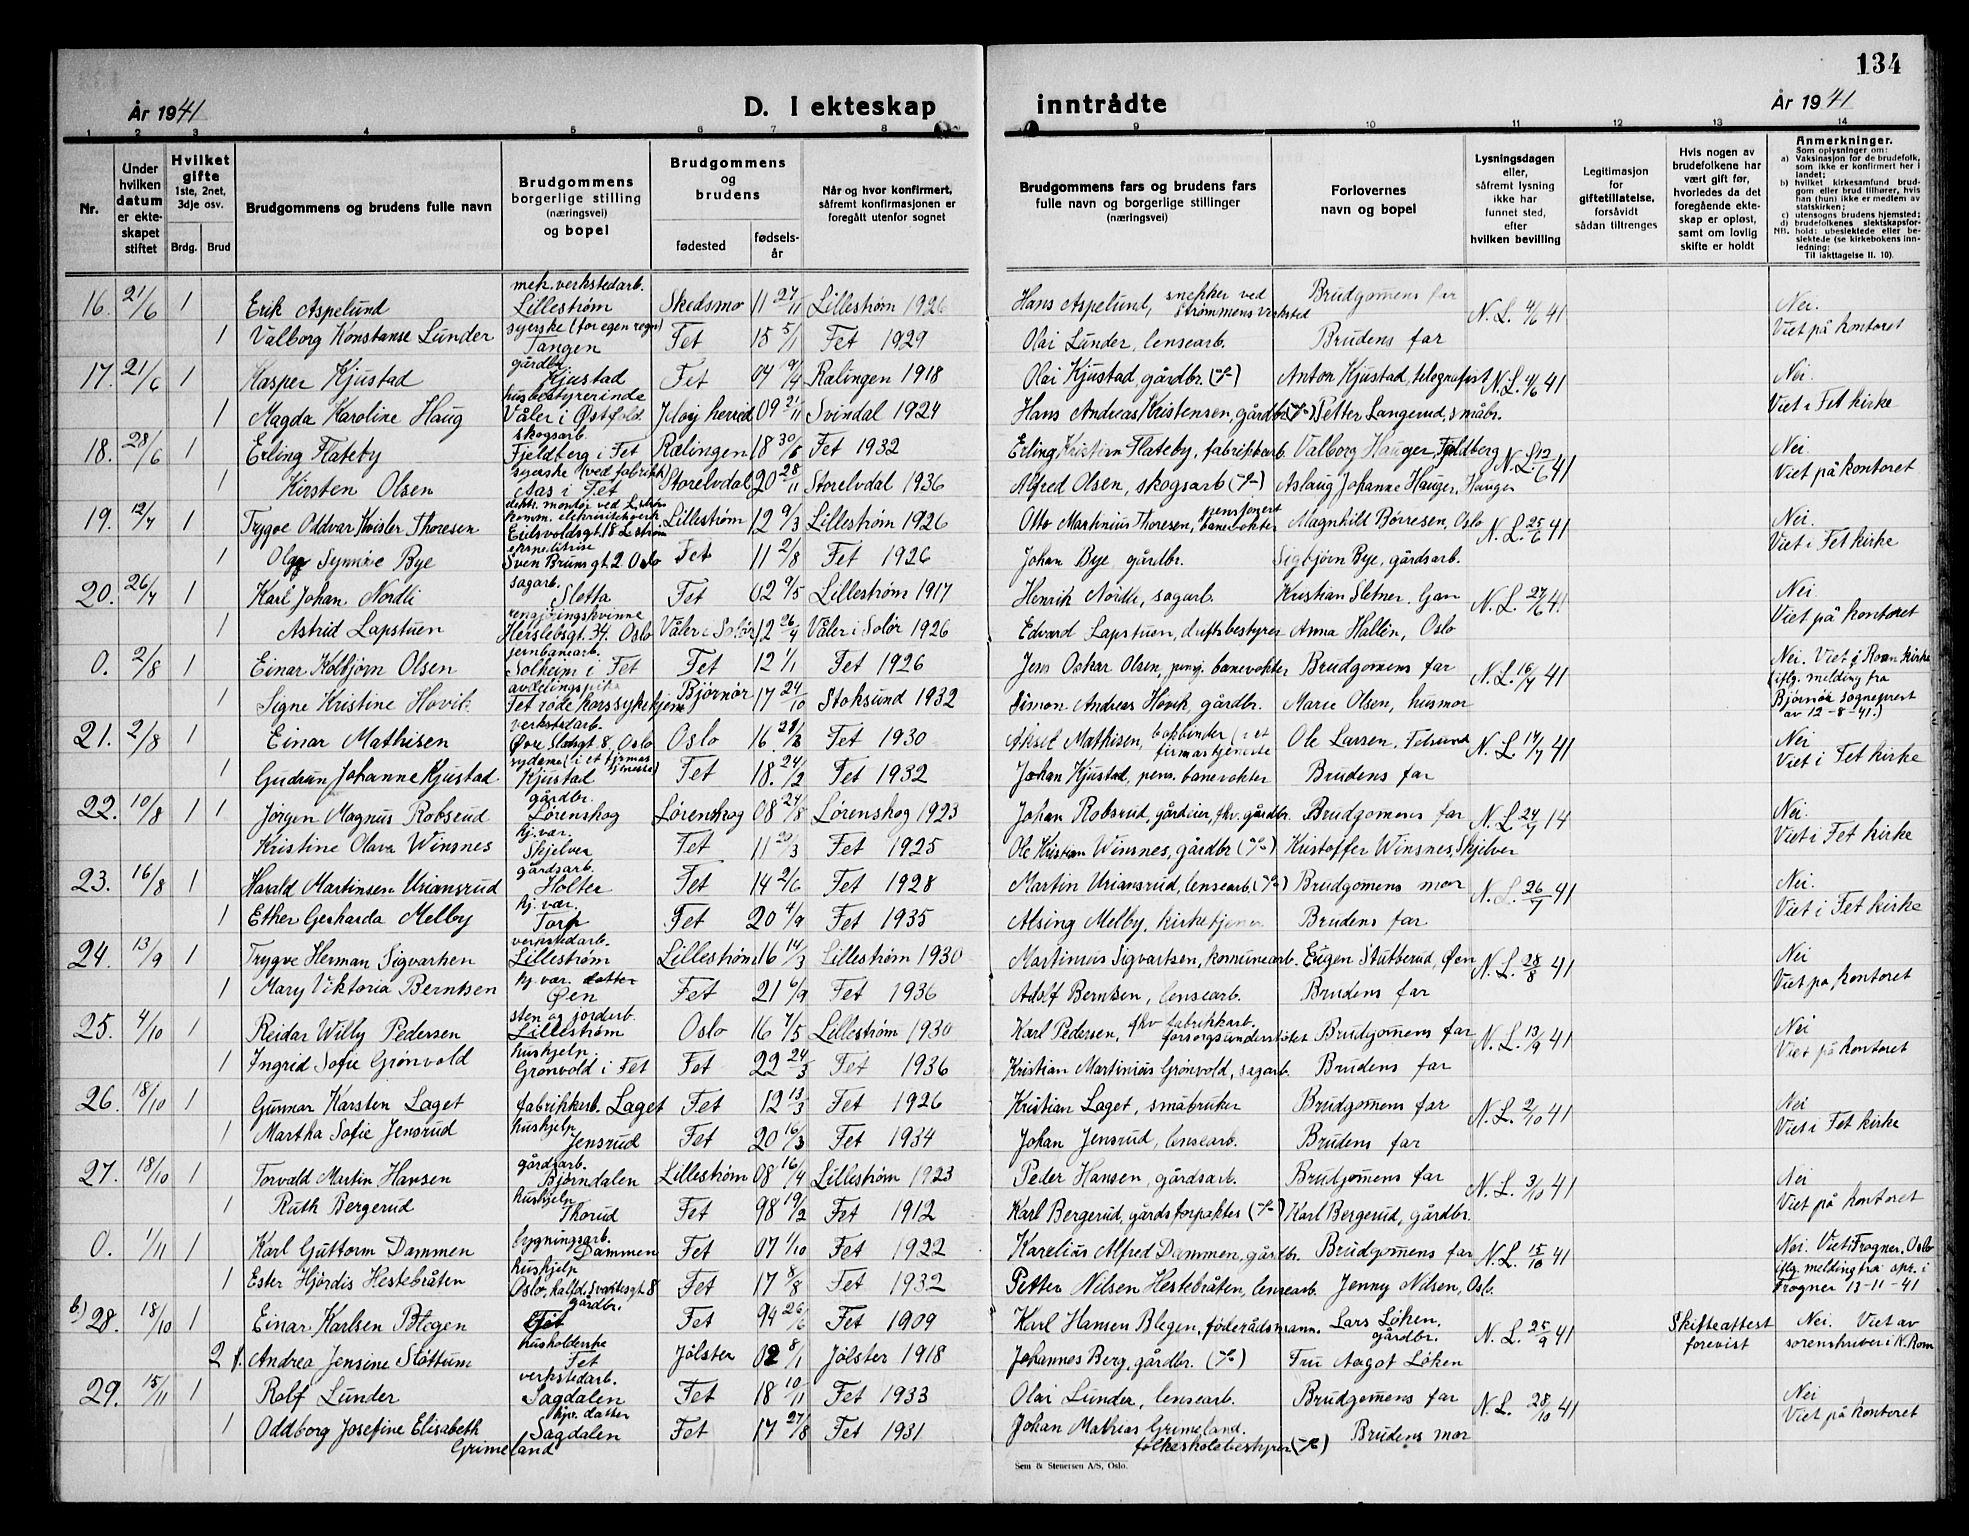 134
År 1941
D. I ekteskap inntrådte
År 1941
1 2 3 4 5 6 7 8 9 10 11 12 13 14
Nr.
Under hvilken datum er ekteskapet stiftet
Hvilket gifte 1ste, 2net, 3dje osv.
Brdg. Brud
Brudgommens og brudens fulle navn
Brudgommens borgerlige stilling (næringsvei) og bopel
Brudgommens og brudens
fødested
fødselsår
Når og hvor konfirmert, såfremt konfirmasjonen er foregått utenfor sognet
Brudgommens fars og brudens fars fulle navn og borgerlige stillinger (næringsvei)
Forlovernes navn og bopel
Lysningsdagen eller, såfremt lysning ikke har funnet sted, efter hvilken bevilling
Legitimasjon for giftetillatelse, forsåvidt sådan tiltrenges
Hvis nogen av brudefolkene har vært gift før, hvorledes da det foregående ekteskap er opløst, samt om lovlig skifte er holdt
Anmerkninger.
Som oplysninger om:
a) Vaksinasjon for de brudefolk, som ikke er konfirmert her i landet;
b) hvilket kirkesamfund brudgom eller brud tilhører, hvis han (hun) ikke er medlem av statskirken;
c) utensogns brudens hjemsted;
d) brudefolkenes slektskapsforhold: ubeslektede eller beslektede (se kirkebokens innledning;
NB. Til iakttagelse II. 10).
16. 21/6 1 Erik Aspelund mek. verkstedarb. Lillestrøm Skedsmo 11 27/11 Lillestrøm 1926 Hans Aspelund, snekker ved Strømmens verksted Brudgomens far N. L. 4/6 41 Nei.
1 Valborg Konstanse Lunder syerske (for egen regn) Tangen Fet 15 5/1 Fet 1929 Olai Lunder, lensearb. Brudens far Viet på kontoret
17. 21/6 1 Kasper Kjustad gårdbr. Kjustad Fet 04 9/4 Rælingen 1918 Olai Kjustad, gårdbr. Anton Kjustad, telegrafist N. L. 4/6 41 Nei.
1 Magda Karoline Haug husbestyrerinde Våler i Østfold Jeløy herred 09 21/11 Svindal 1924 Hans Andreas Kristensen, gårdbr. Petter Langerud, småbr. Viet i Fet kirke
18. 28/6 1 Erling Flateby skogsarb. Fjeldberg i Fet Rælingen 18 30/5 Fet 1932 Erling Kristian Flateby, fabrikkarb. Valborg Hauger, Fjeldberg N. L. 12/6 41 Nei
1 Kirsten Olsen syerske (ved fabrikk) Aas i Fet Storelvdal 20 28/11 Storelvdal 1936 Alfred Olsen, skogsarb Aslaug Johanne Hauger, Hauger Viet på kontoret
19. 12/7 1 Trygve Oddvar Kvisler Thoresen elektr. montør ved L.strøm komm. elektrisitetsverk Eidsvoldsgt. 18 L.strøm Lillestrøm 12 9/3 Lillestrøm 1926 Otto Martinius Thoresen, pensjonert banevokter Magnhild Børresen, Oslo N. L. 25/6 41 Nei.
1 Olga Synnøve Bye ekspeditrise Sven Bruns gt. 2 Oslo Fet 11 2/8 Fet 1926 Johan Bye gårdbr. Sigbjørn Bye, gårdsarb. Viet i Fet kirke
20. 26/7 1 Karl Johan Nordli sagarb. Sletta Fet 02 9/5 Lillestrøm 1917 Henrik Nordli, sagarb. Kristian Sletner. Gan N. L. 27/6 41 Nei
1 Astrid Lapstuen rengjøringskvinne Herslebsgt. 34, Oslo Våler i Solør 12 26/4 Våler i Solør 1926 Edvard Lapstuen, driftsbestyrer Anna Hallén, Oslo Viet på kontoret
0. 2/8 1 Einar Kolbjørn Olsen jernbanearb. Solheim i Fet Fet 12 1/1 Fet 1926 Jens Oskar Olsen, pensj. banevokter Brudgomens far N. L. 16/7 41 Nei. Viet i Roan kirke
1 Signe Kristine Hovik avdelingspike Fet røde korssykehjem Bjørnør 17 24/10 Stoksund 1932 Simon Andreas Hovik, gårdbr. Marie Olsen, husmor (iflg. melding fra Bjørnør sogneprest av 12-8-41.)
21. 2/8 1 Einar Mathisen verkstedarb. Øvre Slotsgt. 8, Oslo Oslo 16 Fet 1930 Aksel Mathisen, bokbinder (i et firmas tjeneste Ole Larsen, Fetsund N. L. 14/7 41 Nei
1 Gudrun Johanne Kjustad sydame (i et firmas tjeneste) Kjustad Fet 18. 24/2 Fet 1932 Johan Kjustad, pens. banevokter Brudens far Viet i Fet kirke
22. 10/8 1 1 Jørgen Magnus Robsrud gårdbr. Lørenskog Lørenskog 08 24/8 Lørenskog 1923 Johan Robsrud, gårdeier, fhv. gårdbr. Brudgomens far N. L. 24/7 14 Nei.
Kristine Olava Winsnes hj. vær. Skjelver Fet 11 20/3 Fet 1925 Ole Kristian Winsnes, gårdbr Kristoffer Winsnes, Skjelver Viet i Fet kirke
23. 16/8 1 Harald Martinsen Uriansrud gårdsarb. Holter Fet 14 2/6 Fet 1928 Martin Uriansrud, lensearb. Brudgomens mor N. L. 26/7 41 Nei.
1 Ether Gerharda Melby hj. vær. Torp Fet 20 4/9 Fet 1935 Alsing Melby, kirketjener Brudens far Viet i Fet kirke
24. 13/9 1 Trygve Herman Sigvartsen verkstedarb. Lillestrøm Lillestrøm 16 14/3 Lillestrøm 1930 Martinius Sigvartsen, kommunearb. Eugen Stubberud, Øen N. L. 28/8 41 Nei
1 Mary Viktoria Berntsen hj. vær. datter Øen Fet 21 6/9 Fet 1936 Adolf Berntsen, lensearb. Brudens far Viet på kontoret
25. 4/10 1 Reidar Willy Pedersen sten og jordarb. Lillestrøm Oslo 16 7/5 Lillestrøm 1930 Karl Pedersen, fhv fabrikkarb. forsorgsunderstøttet Brudgomens far N. L. 13/9 41 Nei
1 Ingrid Sofie Grønvold hushjelp Grønvold i Fet Fet 22 24/3 Fet 1936 Kristian Martinius Grønvold, sagarb. Brudens far Viet på kontoret
26. 18/10 1 Gunnar Karsten Laget fabrikkarb. Laget Fet 12 13/3 Fet 1926 Kristian Laget, småbruker Brudgomens far N. L. 2/10 41 Nei
1 Martha Sofie Jensrud hushjelp Jensrud Fet 20 16/3 Fet 1934 Johan Jensrud, lensearb. Brudens far Viet i Fet kirke
27. 18/10 1 Torvald Martin Hansen gårdsarb. Bjørndalen Lillestrøm 08 16/4 Lillestrøm 1923 Peder Hansen, gårdsarb. Brudgomens far N. L. 3/10 41 Nei
1 Ruth Bergerud hushjelp Thorud Fet 98 19/2 Fet 1912 Karl Bergerud, gårdsforpakter Karl Bergerud, gårdbr. Viet på kontoret
0. 1/11 1 Karl Guttorm Dammen bygningsarb. Dammen Fet 07 1/10 Fet 1922 Karelius Alfred Dammen, gårdbr. Brudgomens far N. L. 15/10 41 Nei. Viet i Frogner, Oslo
1 Ester Hjørdis Hestebråten hushjelp Oslo, halfd. Svartesgt. 8 Fet 17 8/8 Fet 1932 Petter Nilsen Hestebråten, lensearb. Jenny Nilsen, Oslo. iflg. melding fra spr. i Frogner 13-11-41
b) 28. 18/10 1 Einar Karlsen Blegen gårdbr. Fet Fet 94 26/6 Fet 1909 Karl Hansen Blegen, føderådsmann. Lars Löken, gårdbr. N. L. 25/9 41 Skifteattest forevist Nei. Viet av
2 Andrea Jensine Slottum husholderske Fet Jölster 02 8/1 Jölster 1918 Johannes Berg, gårdbr. Fru Aagot Löken sorenskriver i N. Rom
29. 15/11 1 Rolf Lunder verkstedarb. Sagdalen Fet 18 10/11 Fet 1933 Olai Lunder, lensearb. Brudgomens far N. L. 28/10 41 Nei
1 Oddborg Josefine Elisabeth Grimeland hjv. datter Sagdalen Fet 17 27/8 Fet 1931 Johan Mathias Grimeland. folkeskolebestyrer Brudens mor Viet på kontoret
Sem & Stenersen A/S, Oslo.